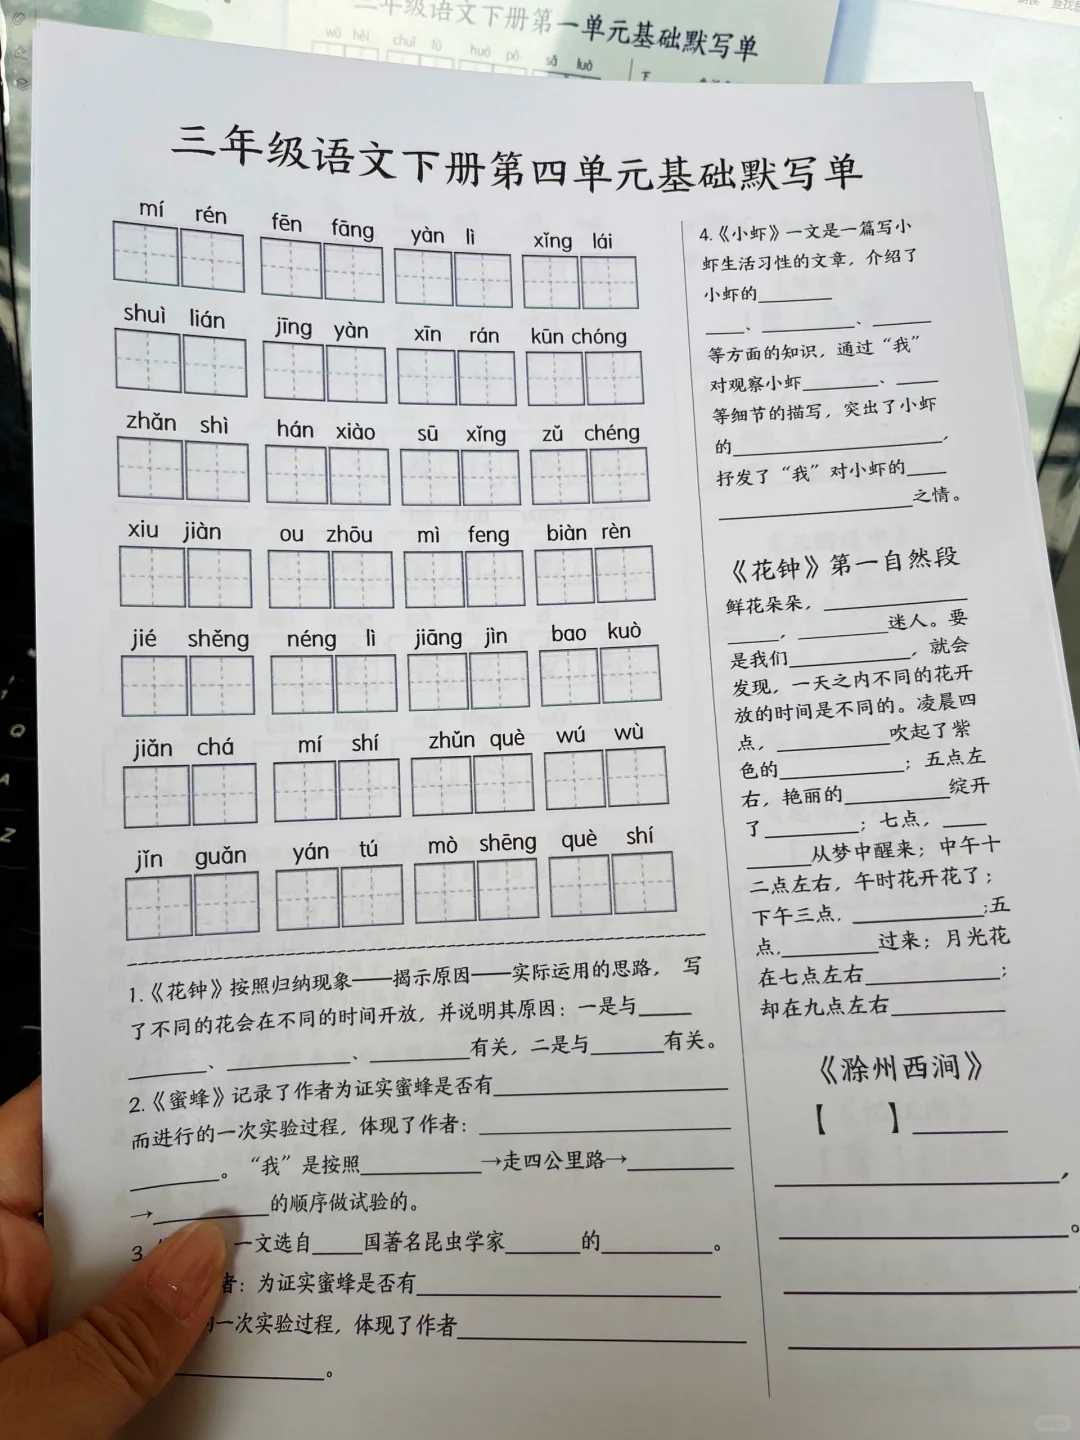 三年级语文下册第一单元基础默写单
wū hēi chuī fú huó pō sǎ luò
三年级语文下册第四单元基础默写单
mí rén fēn fāng yàn lì xǐng lái
shuì lián jīng yàn xīn rán kūn chóng
zhǎn shì hán xiào sū xǐng zǔ chéng
xiu jiàn ou zhōu mì feng biàn rèn
jié shěng néng lì jiāng jìn bao kuò
jiǎn chá mí shí zhǔn què wú wù
jǐn guǎn yán tú mò shēng què shí
1.《花钟》按照归纳现象——揭示原因——实际运用的思路， 写
了不同的花会在不同的时间开放，并说明其原因：一是与_____
________、____________、_________有关，二是与______有关。
2.《蜜蜂》记录了作者为证实蜜蜂是否有____________________
而进行的一次实验过程，体现了作者：____________________
________。“我”是按照__________→走四公里路→_________
→__________的顺序做试验的。
3. 一文选自____国著名昆虫学家______的_________。
者：为证实蜜蜂是否有_________________________
的一次实验过程，体现了作者________________________
____________。
4.《小虾》一文是一篇写小
虾生活习性的文章，介绍了
小虾的_______
____、_________、______
等方面的知识，通过“我”
对观察小虾_______、____
等细节的描写，突出了小虾
的____________________，
抒发了“我”对小虾的____
__________________之情。
《花钟》第一自然段
鲜花朵朵，______________
_____，________迷人。要
是我们___________，就会
发现，一天之内不同的花开
放的时间是不同的。凌晨四
点，__________吹起了紫
色的___________；五点左
右，艳丽的_________绽开
了________；七点，____
______从梦中醒来；中午十
二点左右，午时花开花了；
下午三点，____________;五
点,_________过来；月光花
在七点左右____________；
却在九点左右__________
《滁州西涧》
【 】________
________________________，
________________________。
________________________
________________________